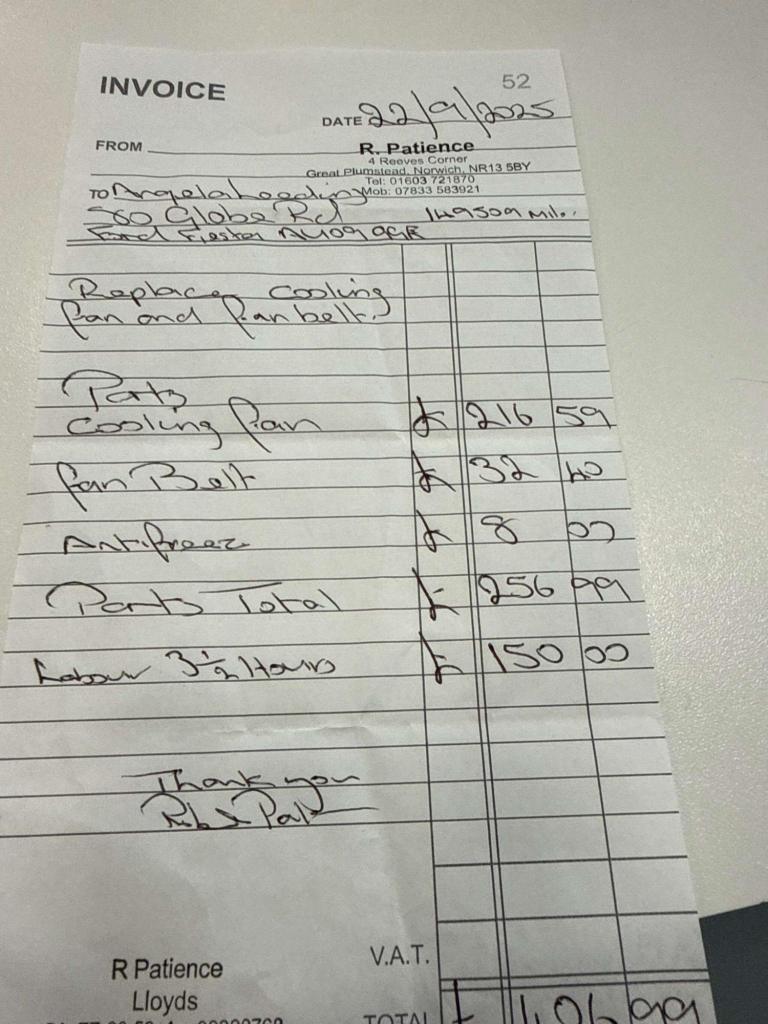 INVOICE
52
DATE 22/9/2025
FROM
R. Patience
4 Reeves Corner
Great Plumstead, Norwich, NR13 5BY
Tel: 01603 721870
Mob: 07833 583921
TO Angela
Globe Rd 149509 Mil.
Ford Fiesta
Replace Cooling
fan and fan belt.
Parts
Cooling fan £ 216 59
fan Belt £ 32 40
Antifreez £ 8 00
Parts Total £ 256 99
Labour 3½ Hours £ 150 00
Thank you
V.A.T.
R Patience
Lloyds
TOTAL £ 406 99